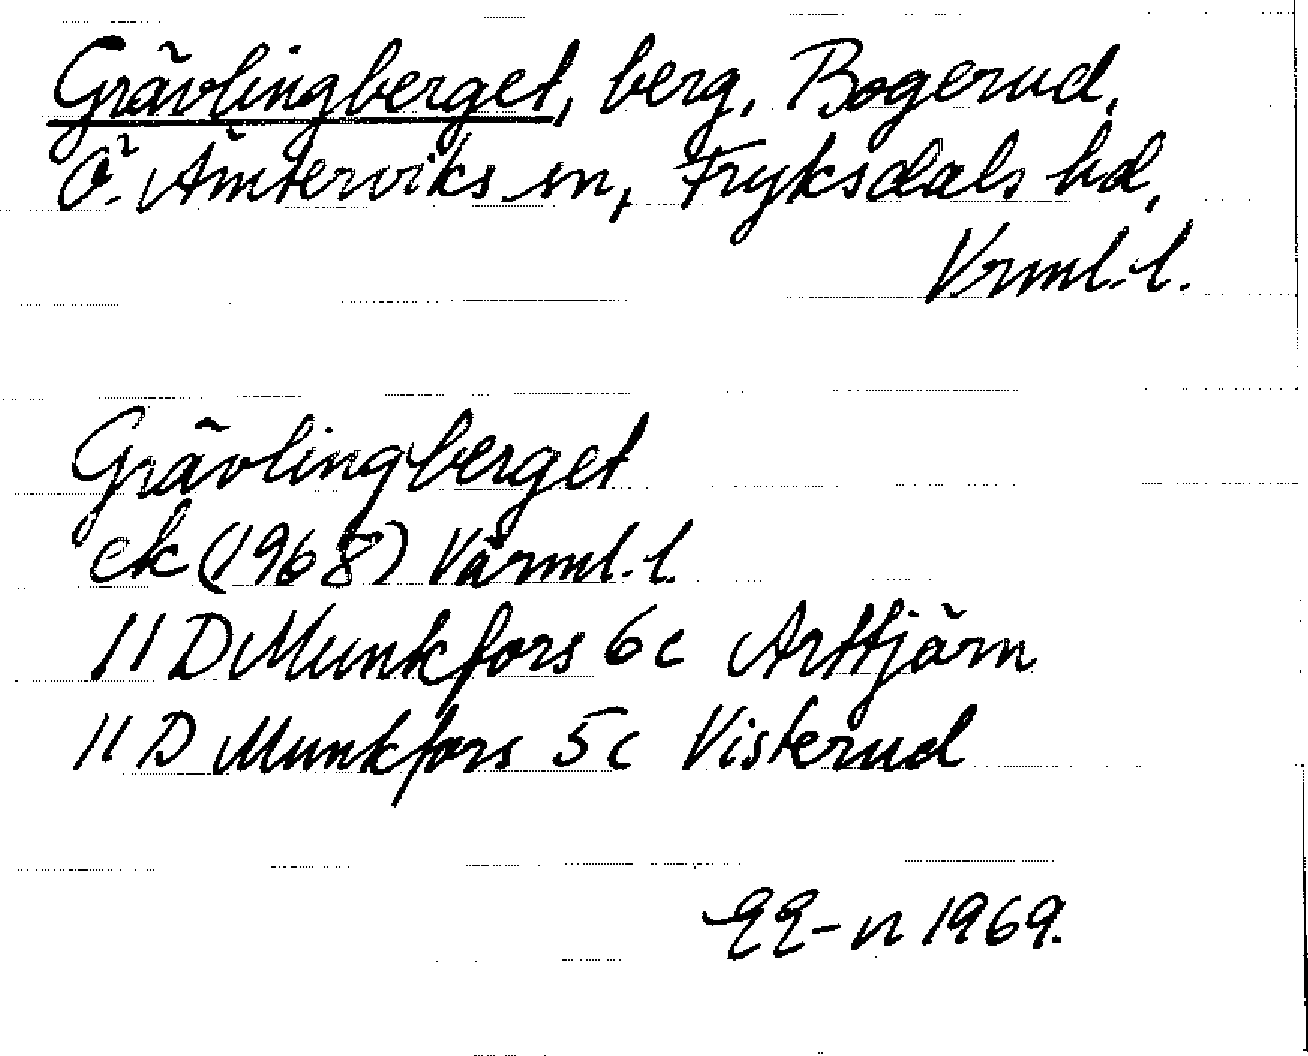 Grävlingberget, berg, Bogerud,
Ö. Ämterviks sn, Fryksdals hd,
Vrml. l.
Grävlingberget
ek (1968) Värml. l.
11 D Munkfors 6c Arttjärn
11 D Munkfors 5c Visterud
1969.